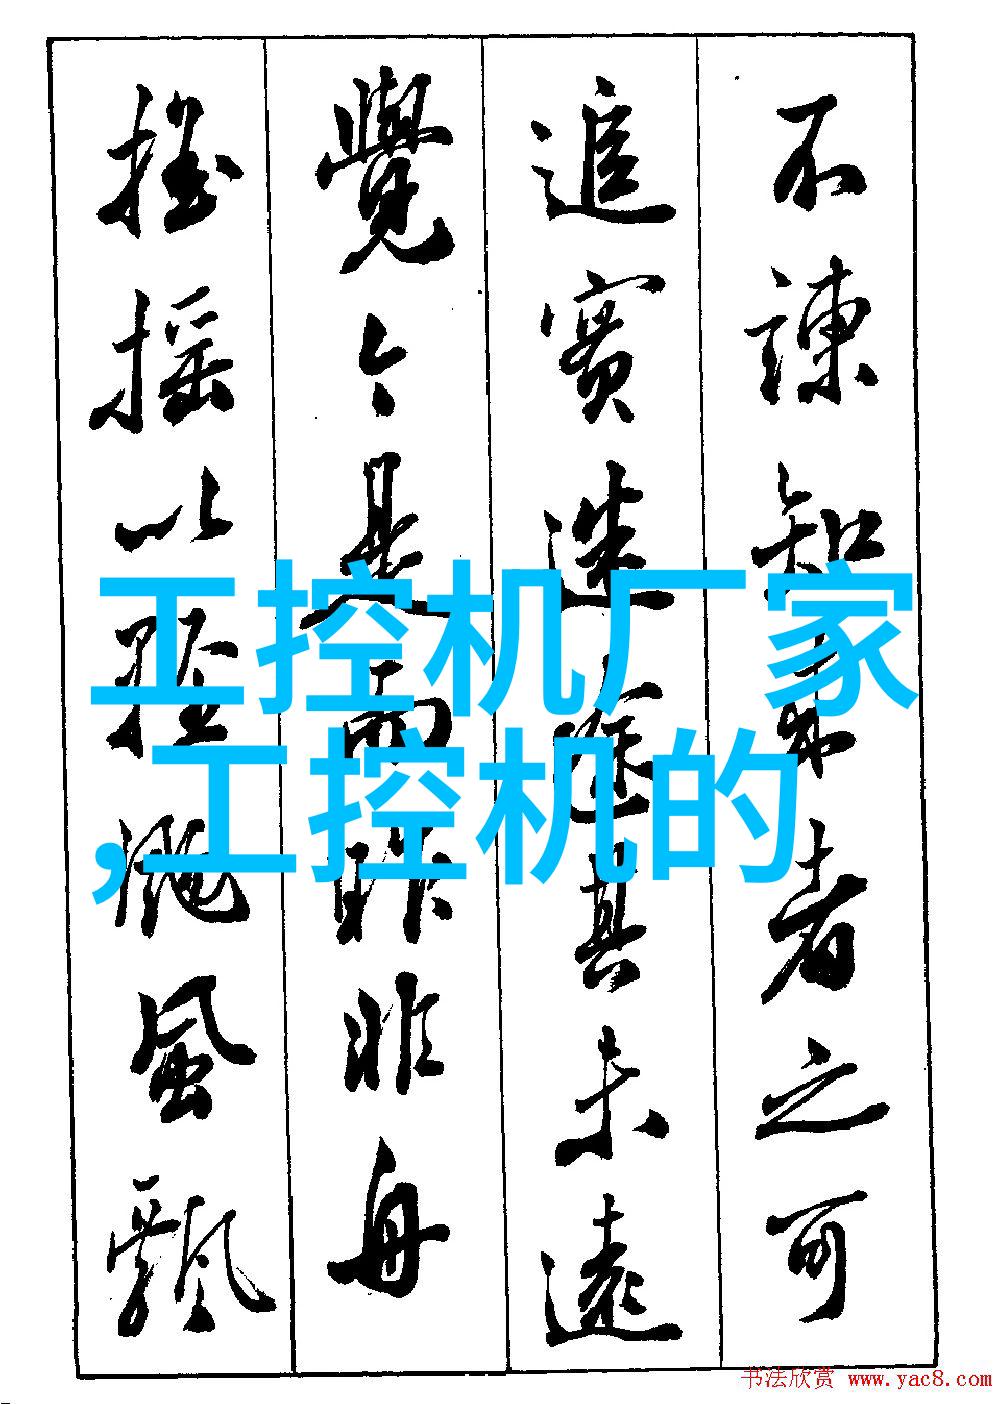 不諫知来者之可
追實迷途其未遠
覺今是而昨非舟
摇摇以輕颺風飄
工控机厂家
,工控机的
书法欣赏 www.yac8.com